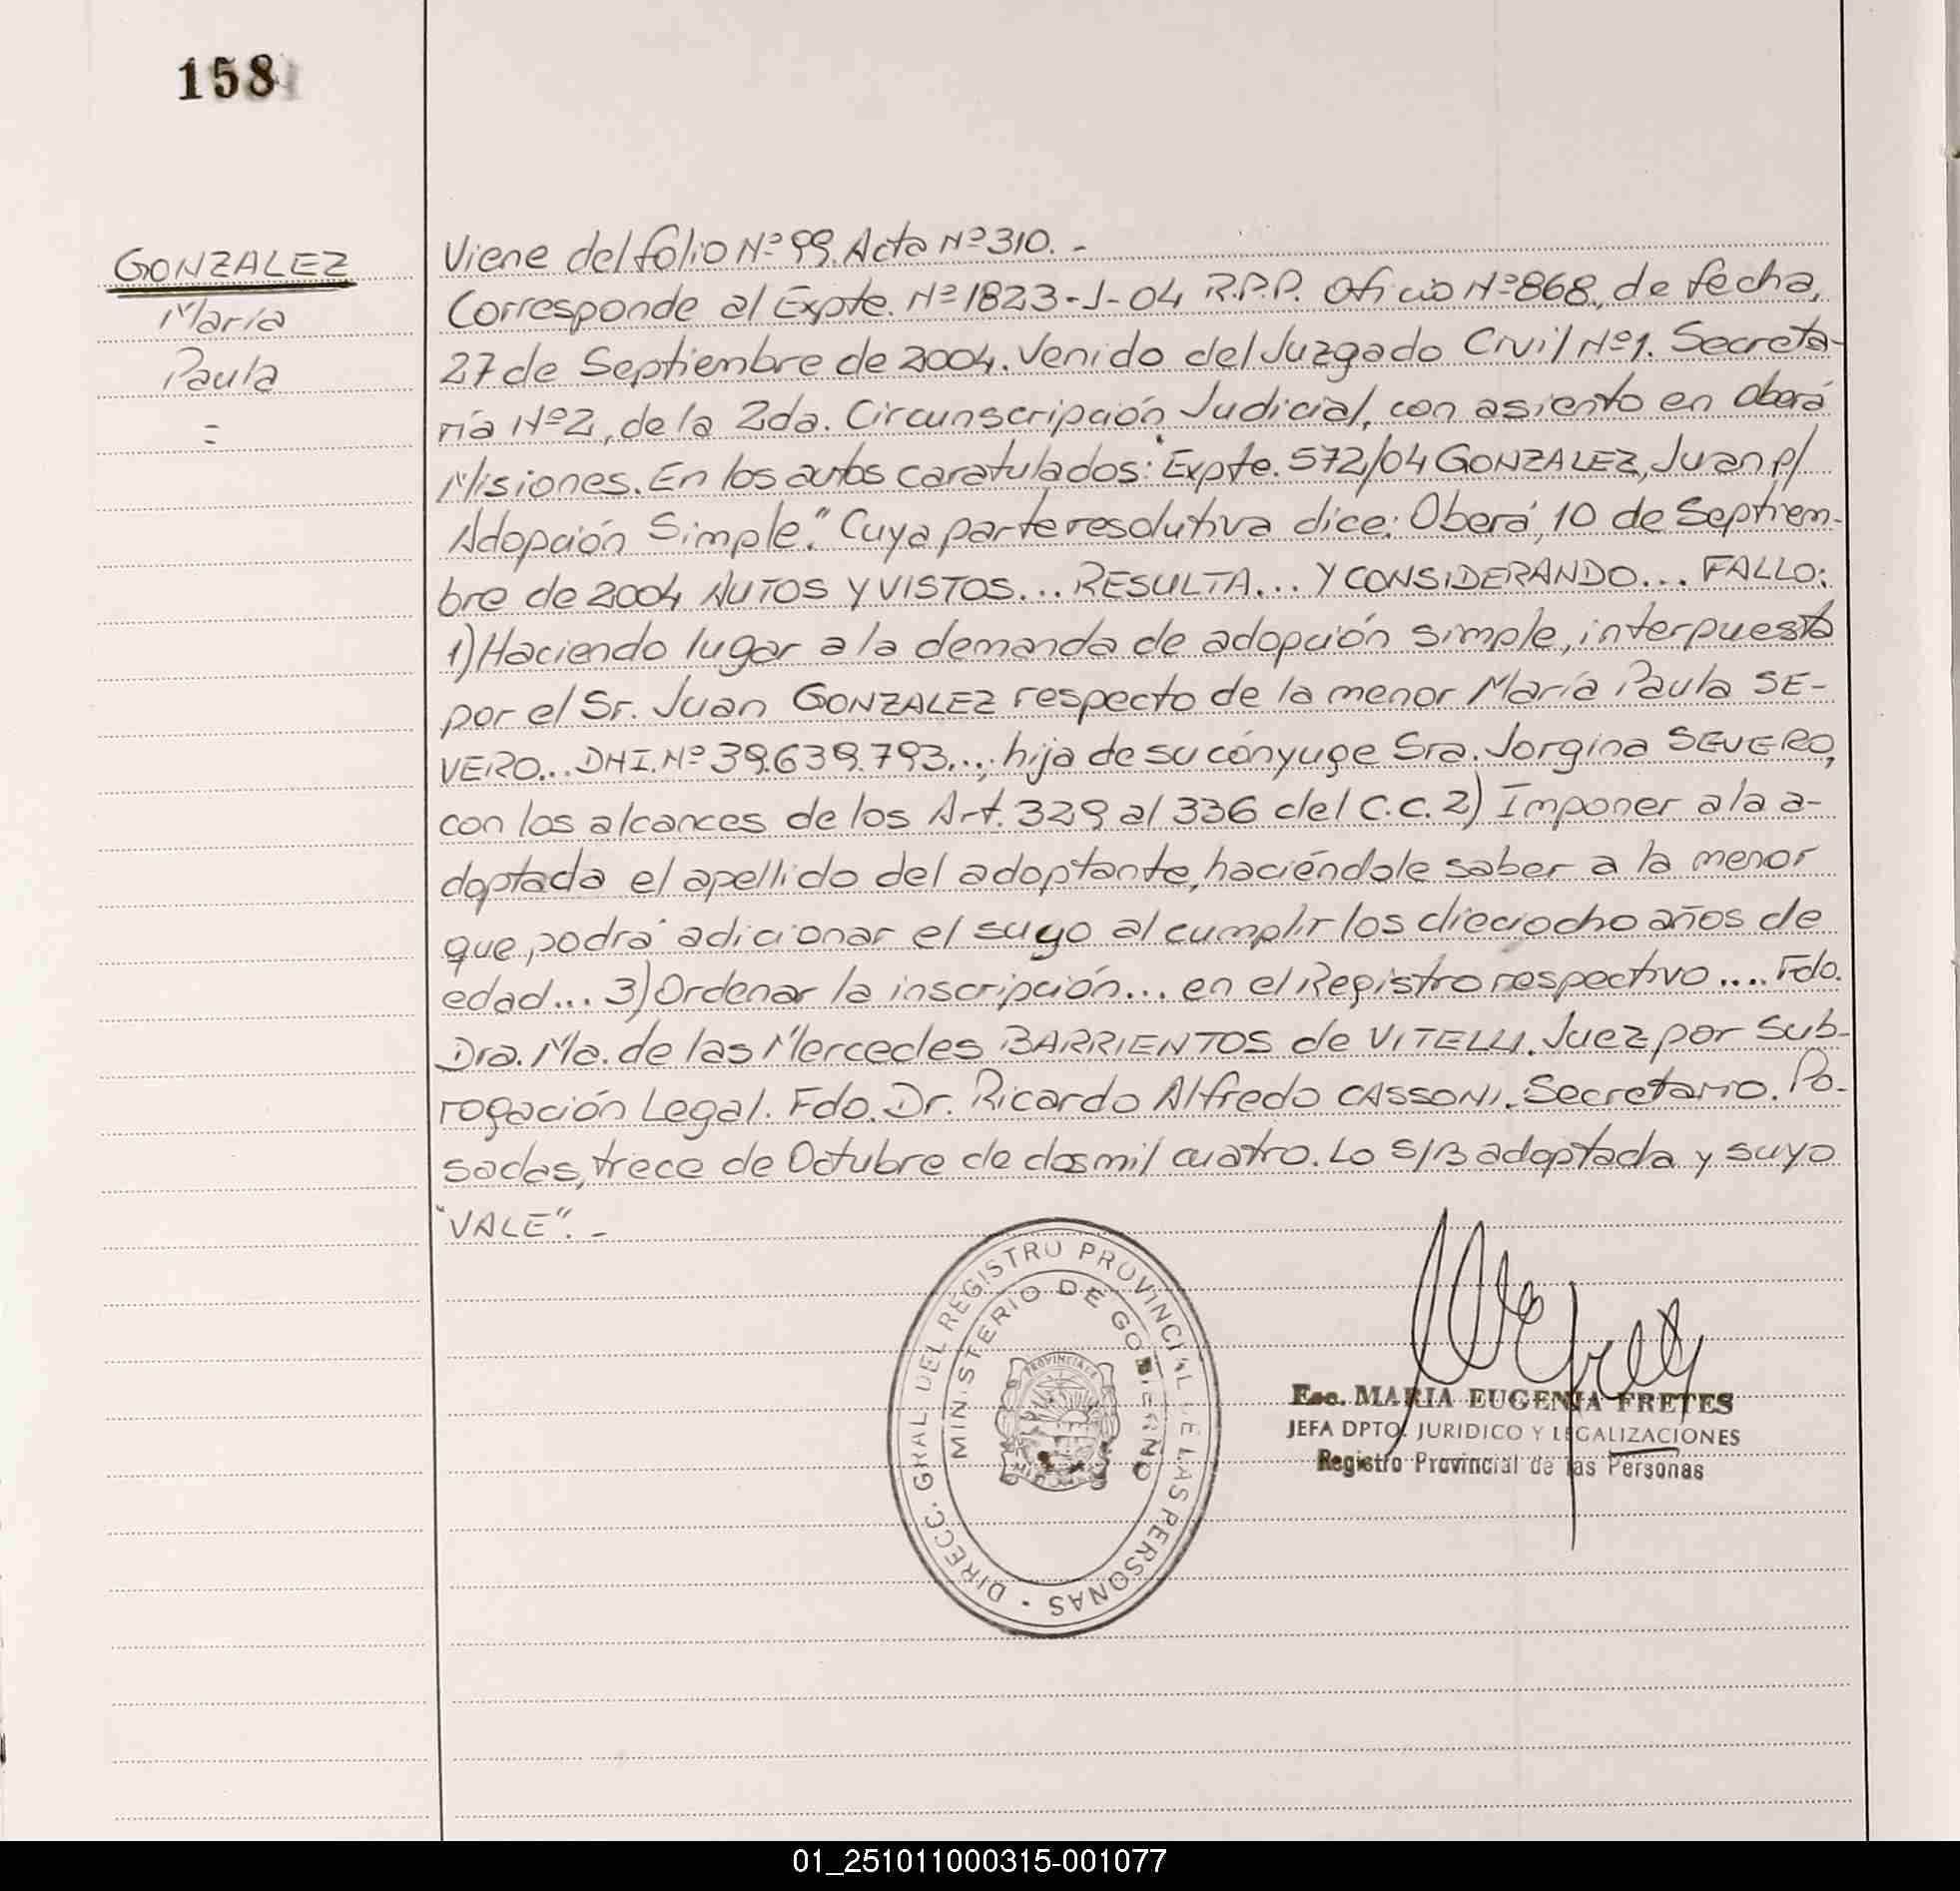 158
GONZALEZ
María
Paula
=
Viene del folio Nº 99. Acta Nº 310. -
Corresponde al Expte. Nº 1823-J-04 R.P.P. Oficio Nº 868, de fecha,
27 de Septiembre de 2004. Venido del Juzgado Civil Nº 1. Secreta-
ría Nº 2, de la 2da. Circunscripción Judicial, con asiento en Oberá
Misiones. En los autos caratulados: "Expte. 572/04 GONZALEZ, Juan p/
Adopción Simple." Cuya parte resolutiva dice: Oberá, 10 de Septiem-
bre de 2004 AUTOS Y VISTOS... RESULTA... Y CONSIDERANDO... FALLO:
1) Haciendo lugar a la demanda de adopción simple, interpuesta
por el Sr. Juan GONZALEZ respecto de la menor María Paula SE-
VERO... DNI. Nº 39.639.793..., hija de su cónyuge Sra. Jorgina SEVERO,
con los alcances de los Art. 329 al 336 del C.C. 2) Imponer a la a-
doptada el apellido del adoptante, haciéndole saber a la menor
que, podrá adicionar el suyo al cumplir los dieciocho años de
edad... 3) Ordenar la inscripción... en el Registro respectivo.... Fdo.
Dra. Ma. de las Mercedes BARRIENTOS de VITELLI. Juez por Sub-
rogación Legal. Fdo. Dr. Ricardo Alfredo CASSONI. Secretario. Po-
sadas, trece de Octubre de dos mil cuatro. Lo S/B adoptada y suyo
"VALE". -
DIRECC. GRAL. DEL REGISTRO PROVINCIAL DE LAS PERSONAS
MINISTERIO DE GOBIERNO
Esc. MARIA EUGENIA FRETES
JEFA DPTO. JURIDICO Y LEGALIZACIONES
Registro Provincial de las Personas
01_251011000315-001077